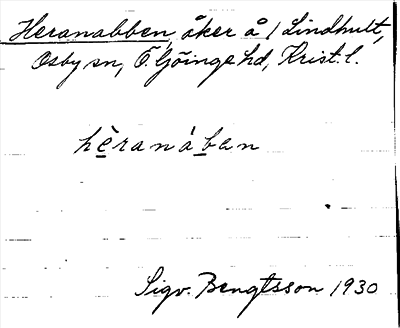 Heranabben, åker å 1 Lindhult,
Osby sn, Ö. Göinge hd, Krist. l.
hèranáben
Sigv. Bengtsson 1930